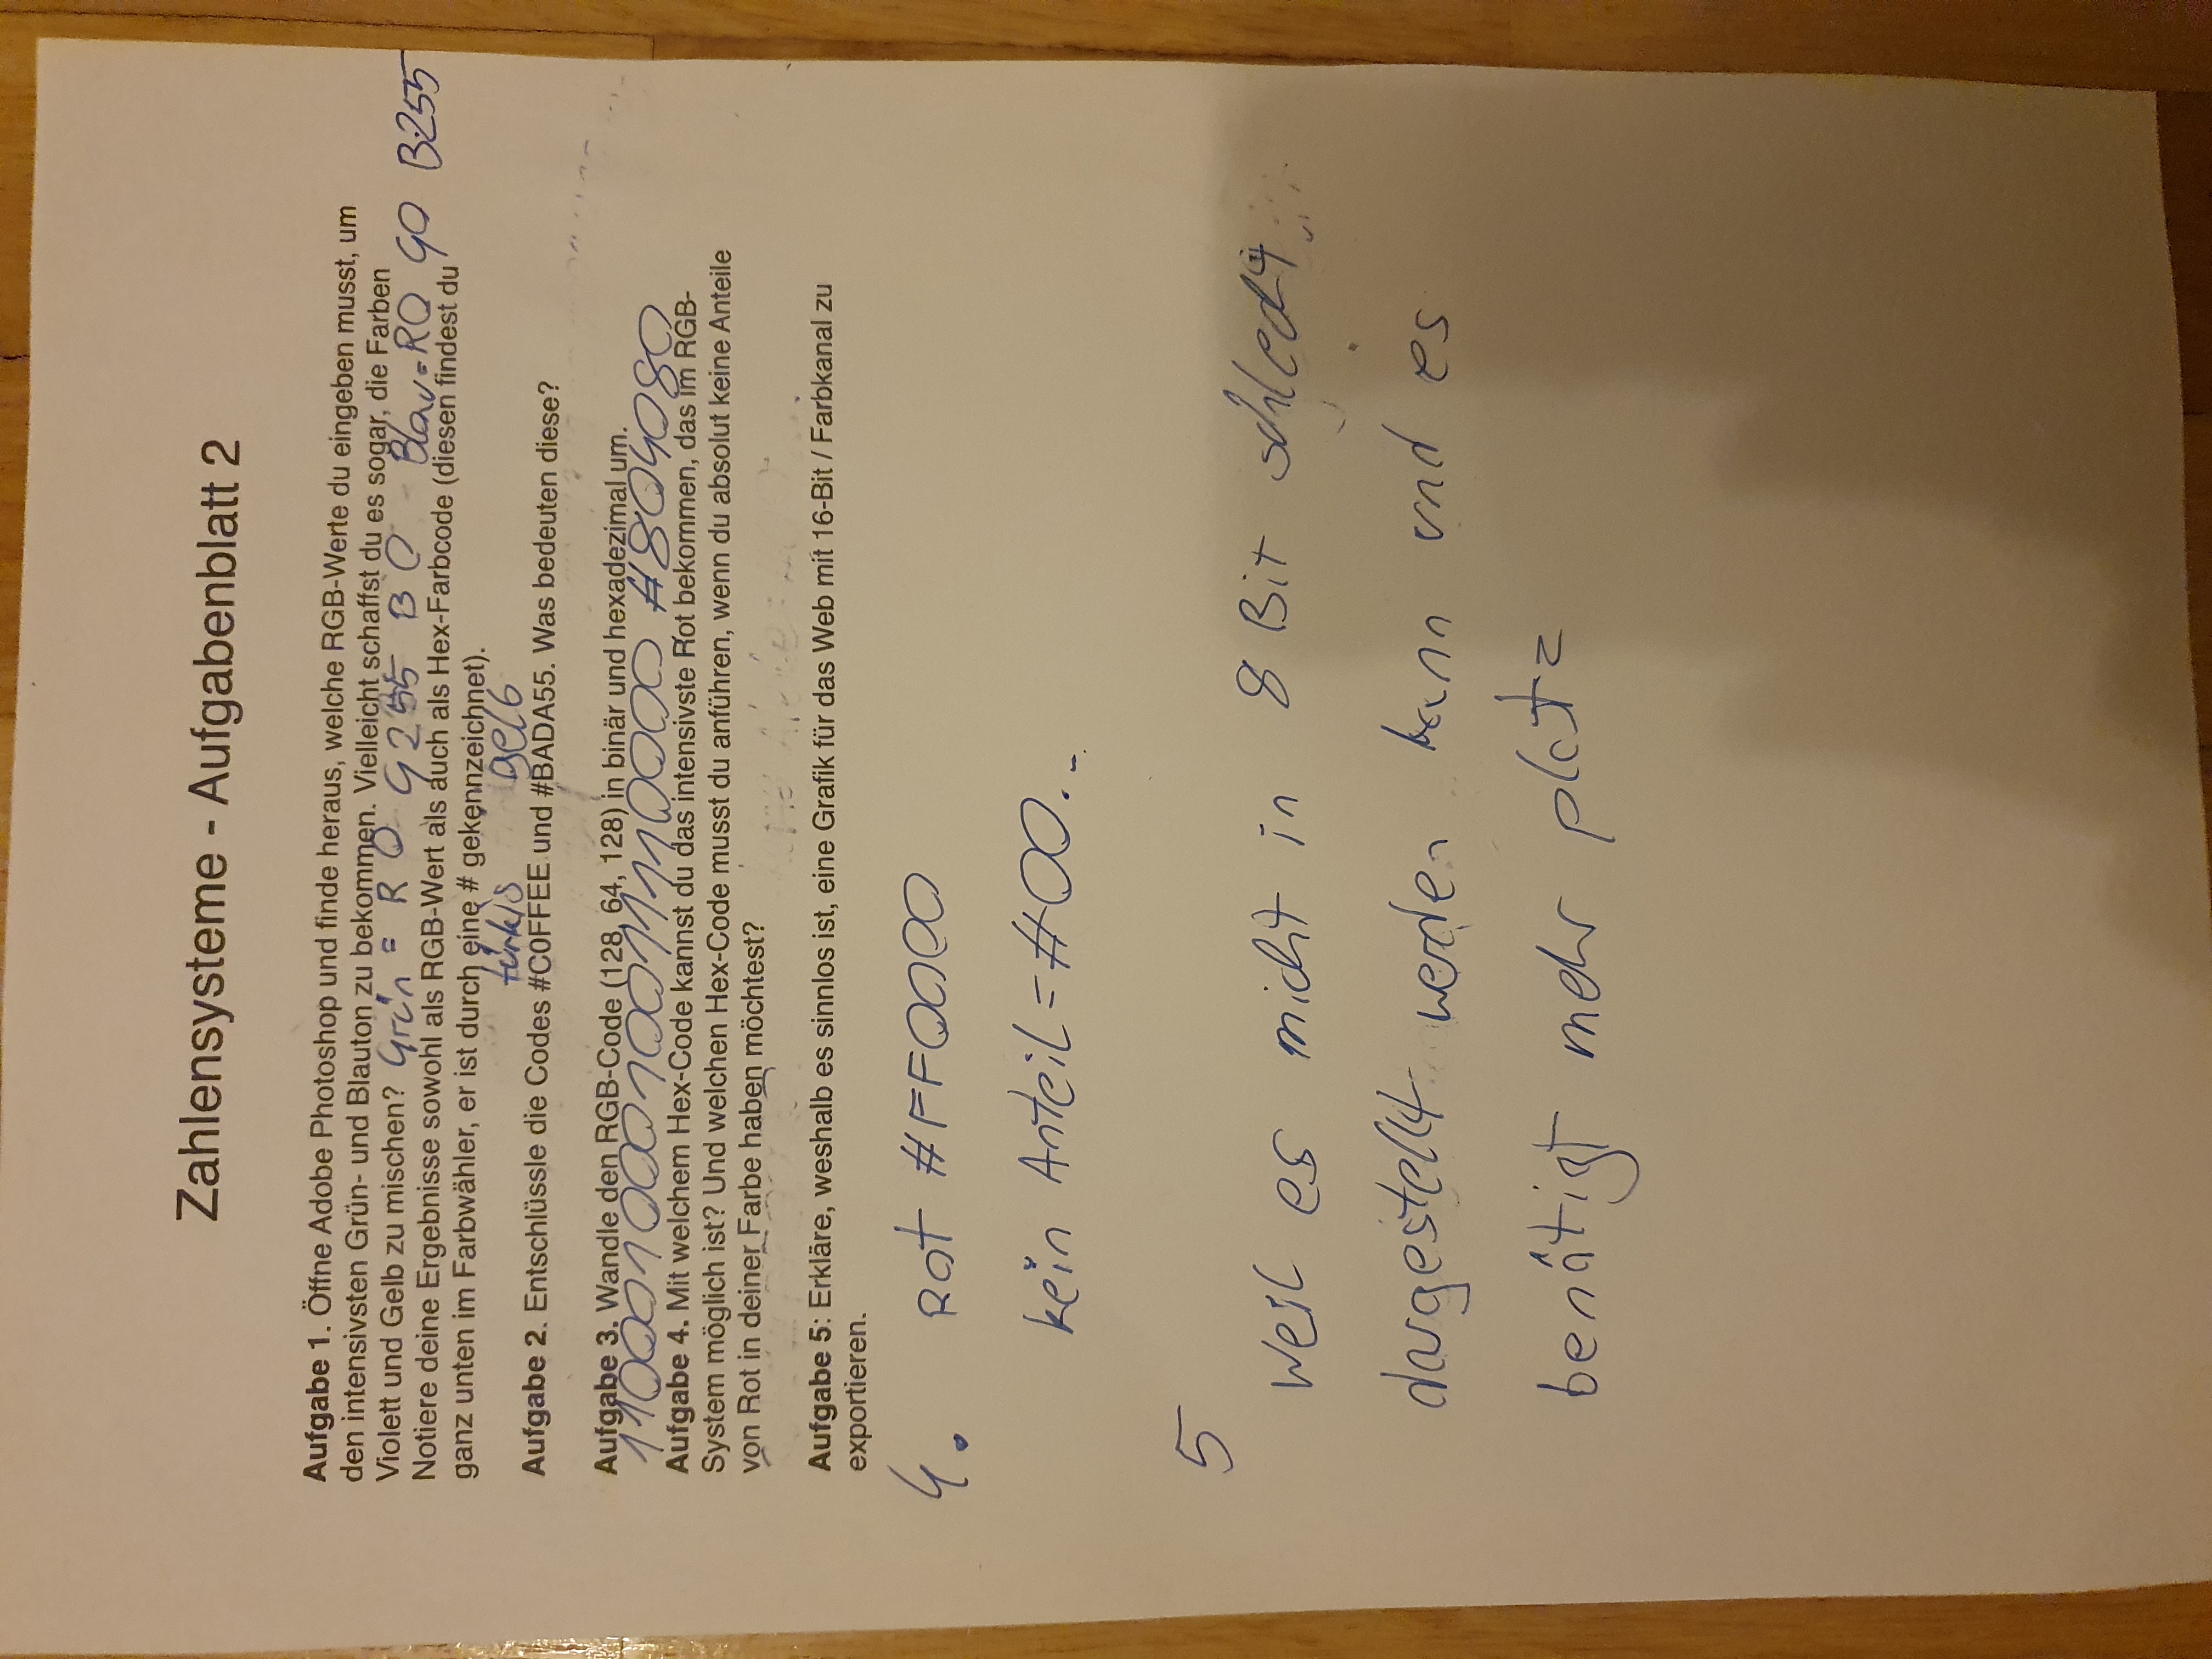 Zahlensysteme - Aufgabenblatt 2
Aufgabe 1. Öffne Adobe Photoshop und finde heraus, welche RGB-Werte du eingeben musst, um
den intensivsten Grün- und Blauton zu bekommen. Vielleicht schaffst du es sogar, die Farben
Violett und Gelb zu mischen? Grün = R 0 G 255 B 0 Blau = R0 G0 B255
Notiere deine Ergebnisse sowohl als RGB-Wert als auch als Hex-Farbcode (diesen findest du
ganz unten im Farbwähler, er ist durch eine # gekennzeichnet).
türkis gelb
Aufgabe 2. Entschlüssle die Codes #C0FFEE und #BADA55. Was bedeuten diese?
Aufgabe 3. Wandle den RGB-Code (128, 64, 128) in binär und hexadezimal um.
110001000100111110000 #804080
Aufgabe 4. Mit welchem Hex-Code kannst du das intensivste Rot bekommen, das im RGB-
System möglich ist? Und welchen Hex-Code musst du anführen, wenn du absolut keine Anteile
von Rot in deiner Farbe haben möchtest?
Aufgabe 5: Erkläre, weshalb es sinnlos ist, eine Grafik für das Web mit 16-Bit / Farbkanal zu
exportieren.
4. Rot #FF0000
kein Anteil = #00...
5
Weil es nicht in 8 Bit schlecht
dargestellt werden kann und es
benötigt mehr platz